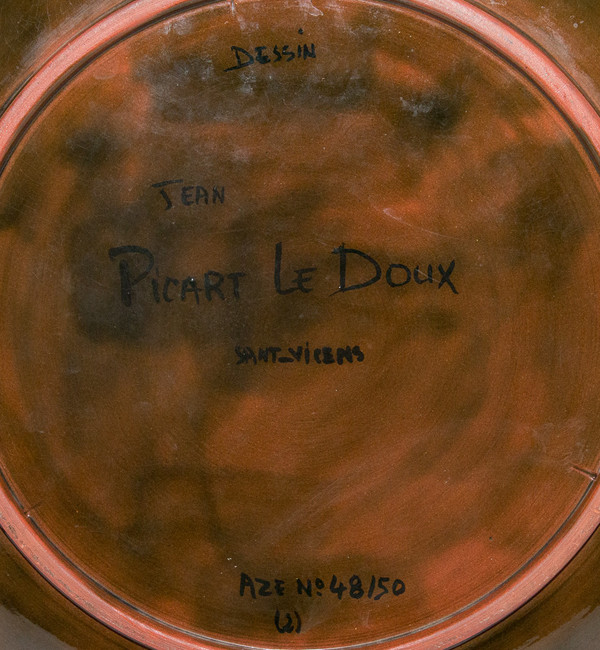 DESSIN
JEAN
PICART LE DOUX
SANT-VICENS
AZE Nº 48/50
(2)